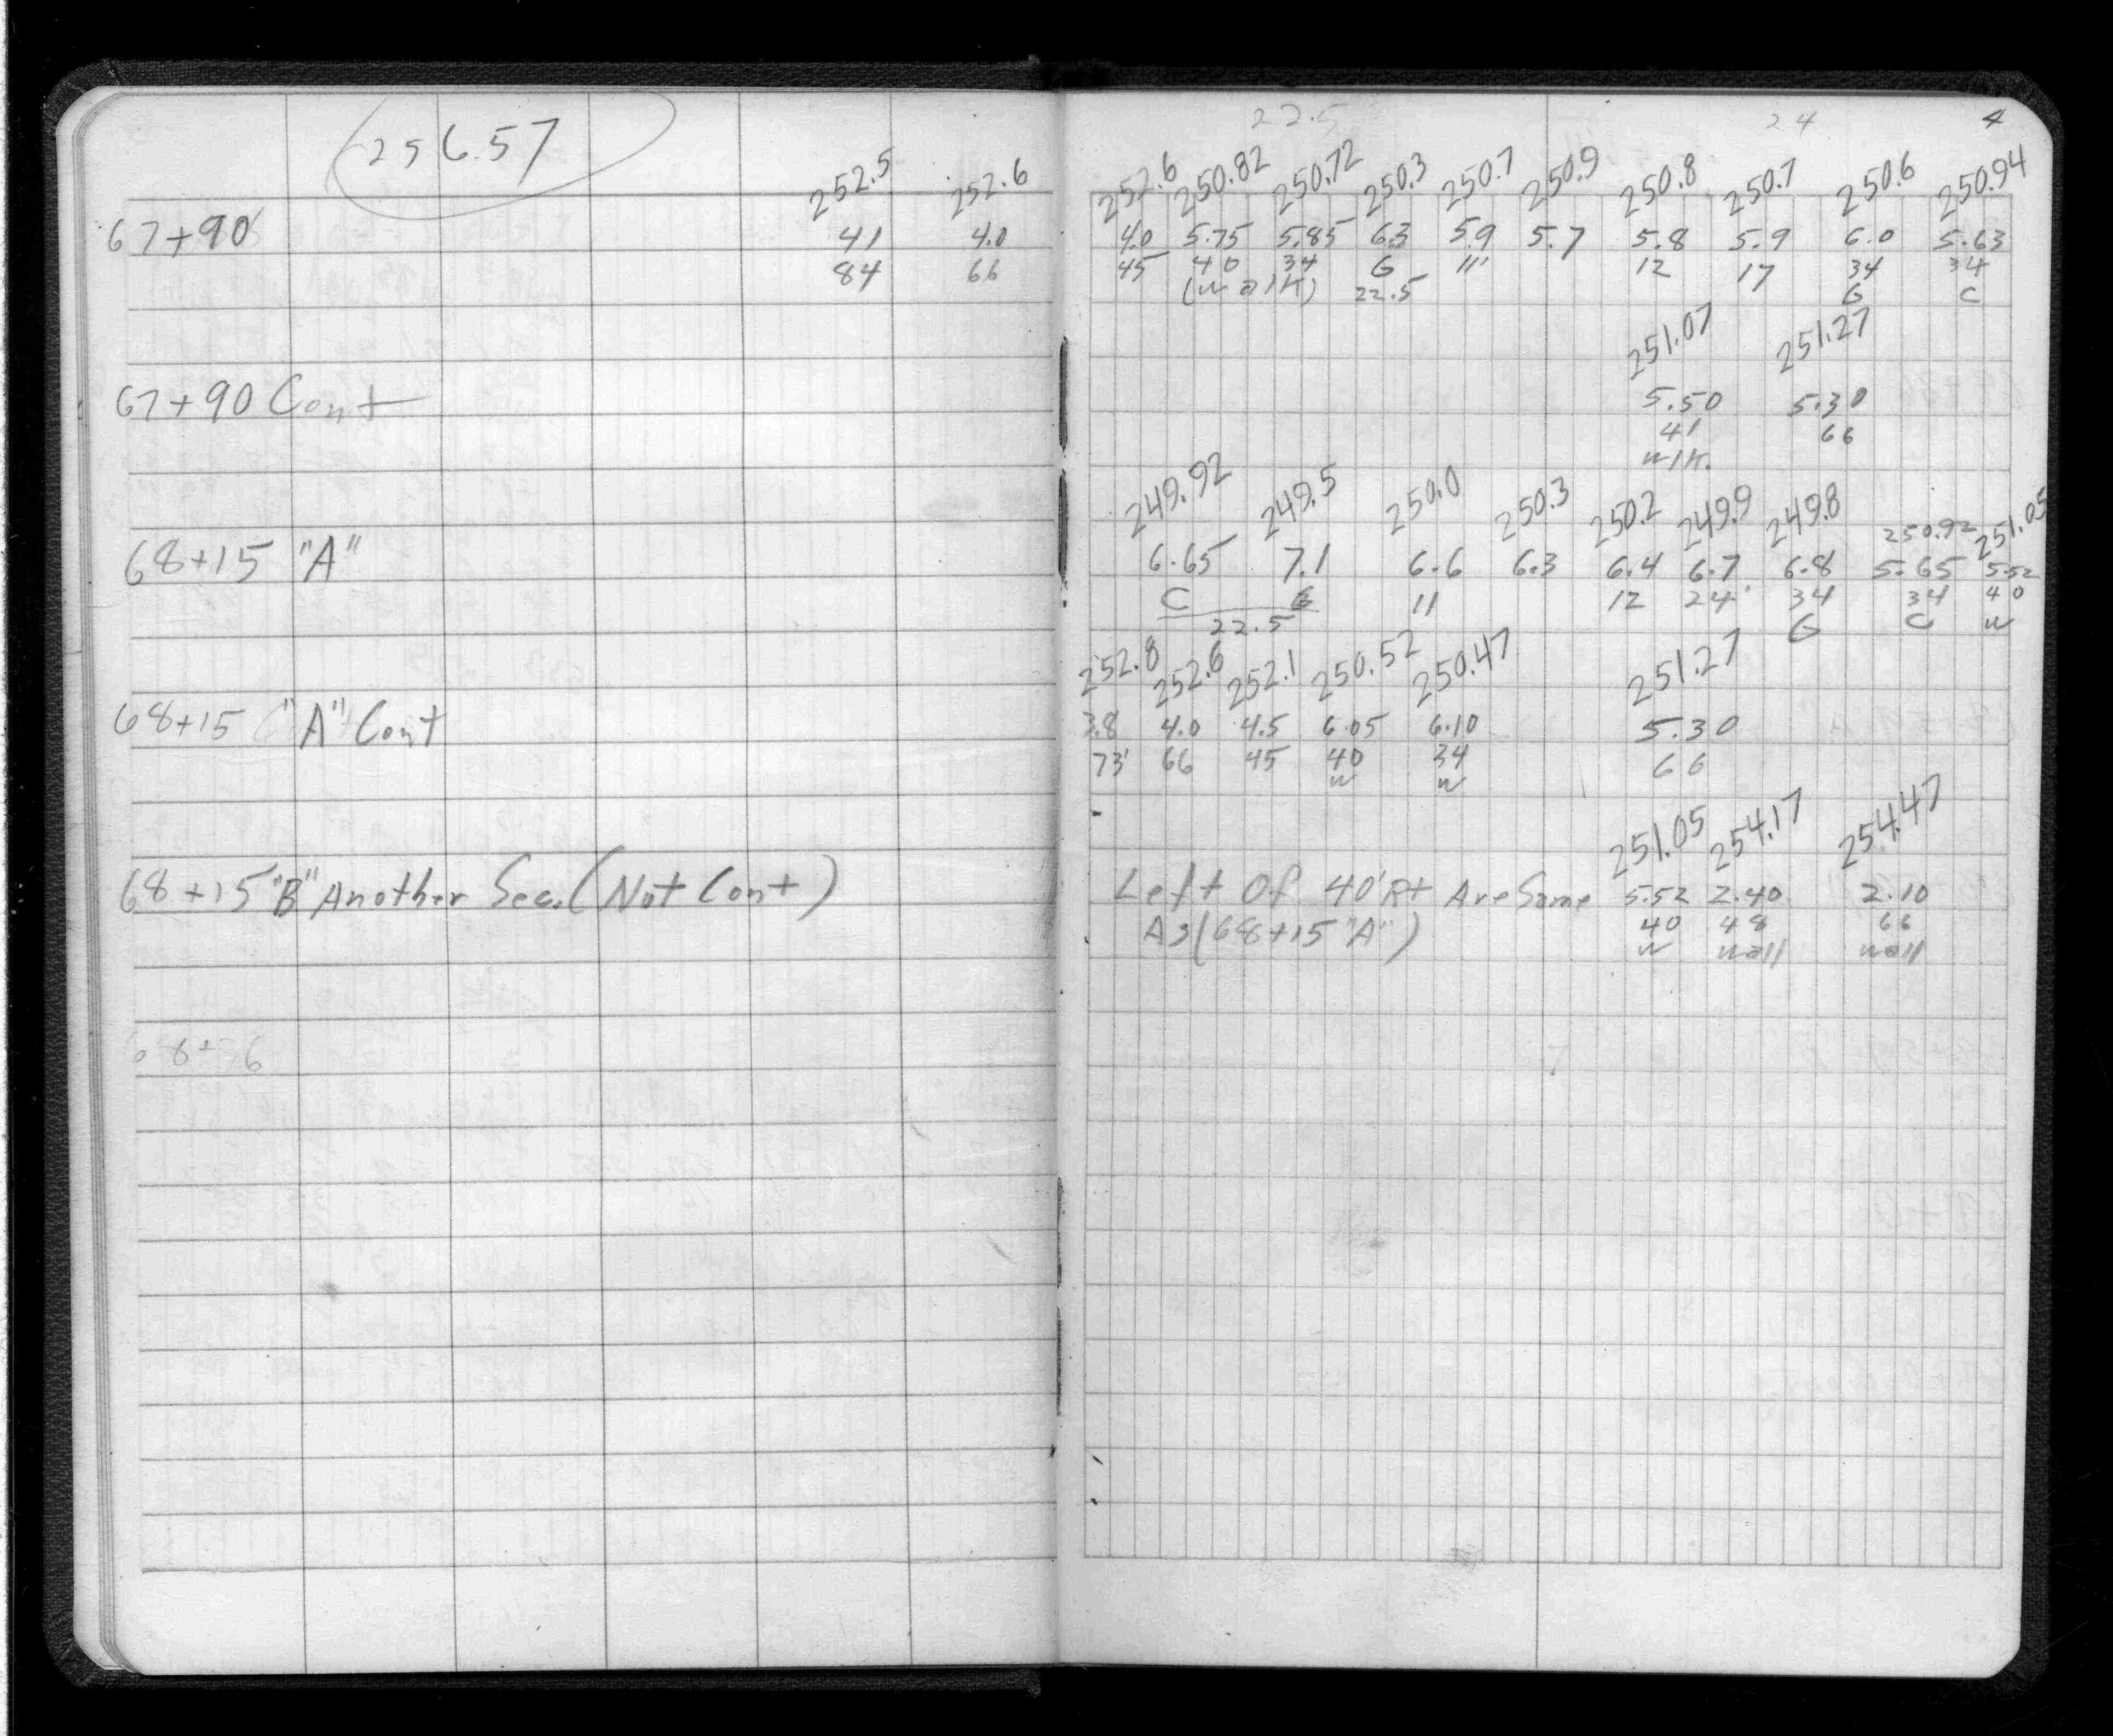 256.57
252.5 252.6
67+90 41 4.0
84 66
67+90 Cont
68+15 "A"
68+15 "A" Cont
68+15 "B" Another Sec. (Not Cont)
68+ 6
22.5 24 4
252.6 250.82 250.72 250.3 250.7 250.9 250.8 250.7 250.6 250.94
4.0 5.75 5.85 6.3 5.9 5.7 5.8 5.9 6.0 5.63
45 40 34 G 11' 12 17 34 34
(walk) 22.5 G C
251.07 251.27
5.50 5.30
41 66
wlk.
249.92 249.5 250.0 250.3 250.2 249.9 249.8 250.92 251.05
6.65 7.1 6.6 6.3 6.4 6.7 6.8 5.65 5.52
C G 11 12 24' 34 34 40
22.5 G C w
252.8 252.6 252.1 250.52 250.47 251.27
3.8 4.0 4.5 6.05 6.10 5.30
73' 66 45 40 34 66
w w
251.05 254.17 254.47
Left Of 40' Rt Are Same 5.52 2.40 2.10
As (68+15 "A") 40 48 66
w wall wall